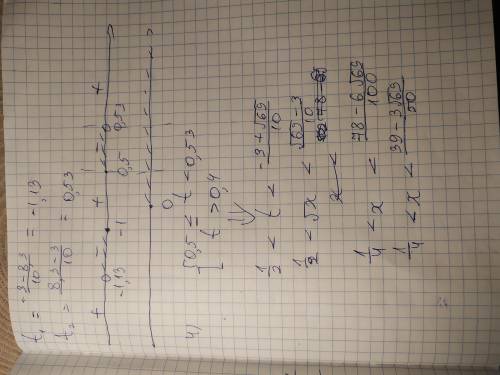 t₁ = (-3-8,3)/10 = -1,13
t₂ = (8,3-3)/10 = 0,53
+ - + - +
-1,13 -1 0,5 0,53
0
4) { 0,5 ≤ t < 0,53
t > 0,4
⇓
1/2 < t < (-3+√69)/10
1/2 < √x < (√69-3)/10
x <
1/4 < x < (78-6√69)/100
1/4 < x < (39-3√69)/50